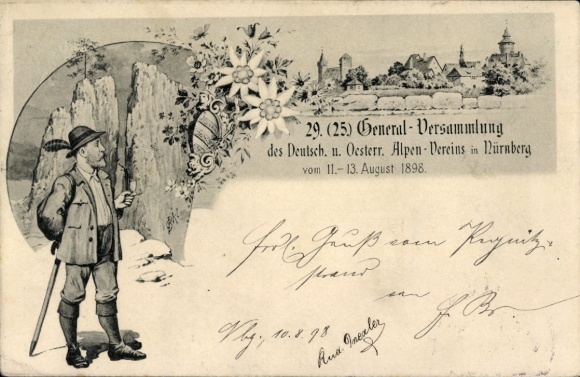 29. (25.) General-Versammlung
des Deutsch. u. Oesterr. Alpen-Vereins in Nürnberg
vom 11.-13. August 1898.
frdl. Gruß vom Pegnitz-
strand
von
Nbg., 10.8.98